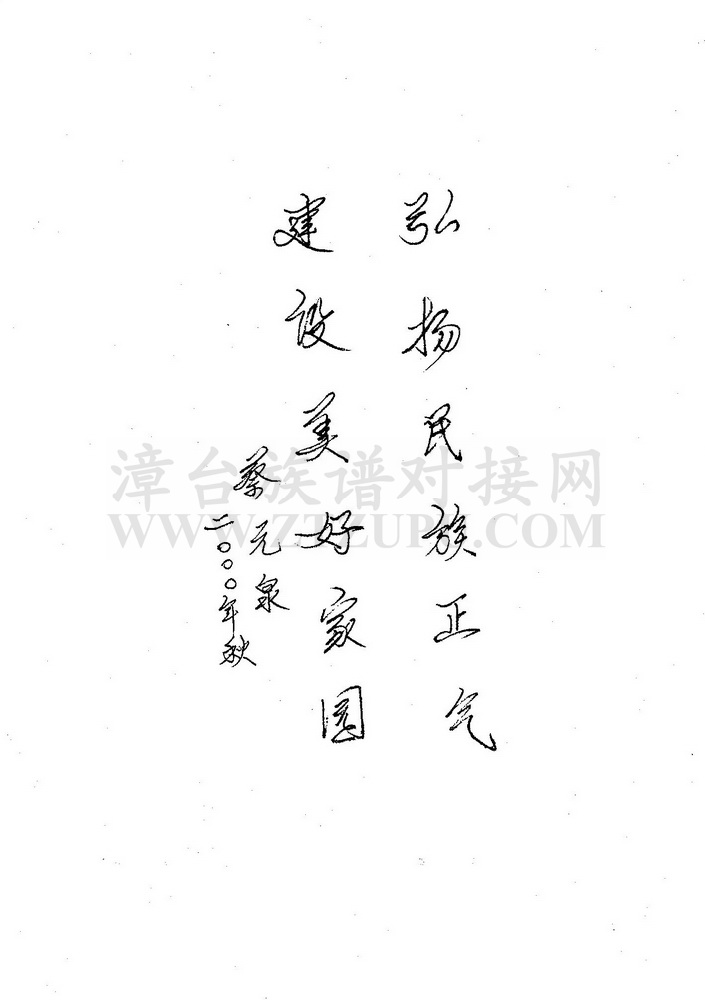 弘扬民族正气
建设美好家园
蔡元泉
二〇〇〇年秋
漳台族谱对接网
WWW.ZTZUPU.COM